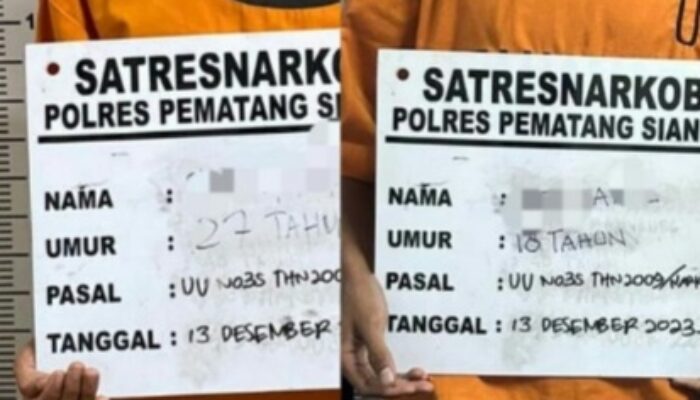 1
SATRESNARKO
POLRES PEMATANG SI
NAMA :
UMUR : 27 TAHU
PASAL : UU NO35 THN200
TANGGAL : 13 DESEMBER
SATRESNARKOB
POLRES PEMATANG SIAN
NAMA : A
UMUR : 18 TAHUN
PASAL : UU NO35 THN2009/
TANGGAL : 13 DESEMBER 2023